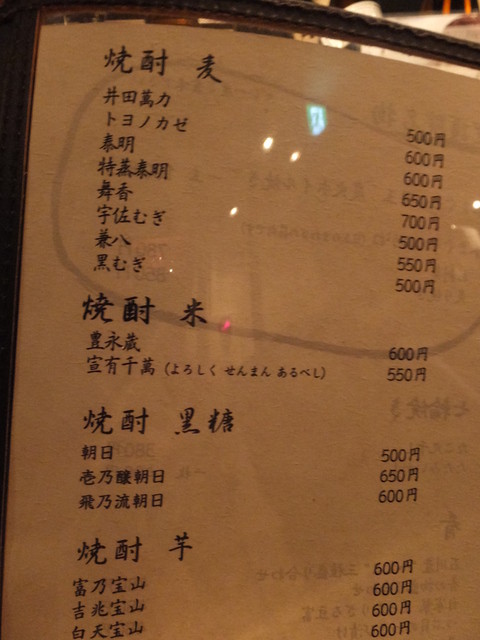 焼酎 麦
井田萬力 500円
トヨノカゼ 600円
泰明 600円
特蒸泰明 650円
舞香 700円
宇佐むぎ 500円
兼八 550円
黒むぎ 500円
焼酎 米
豊永蔵 600円
宣有千萬 (よろしく せんまん あるべし) 550円
焼酎 黒糖
朝日 500円
壱乃醸朝日 650円
飛乃流朝日 600円
焼酎 芋
富乃宝山 600円
吉兆宝山 600円
白天宝山 600円
600円